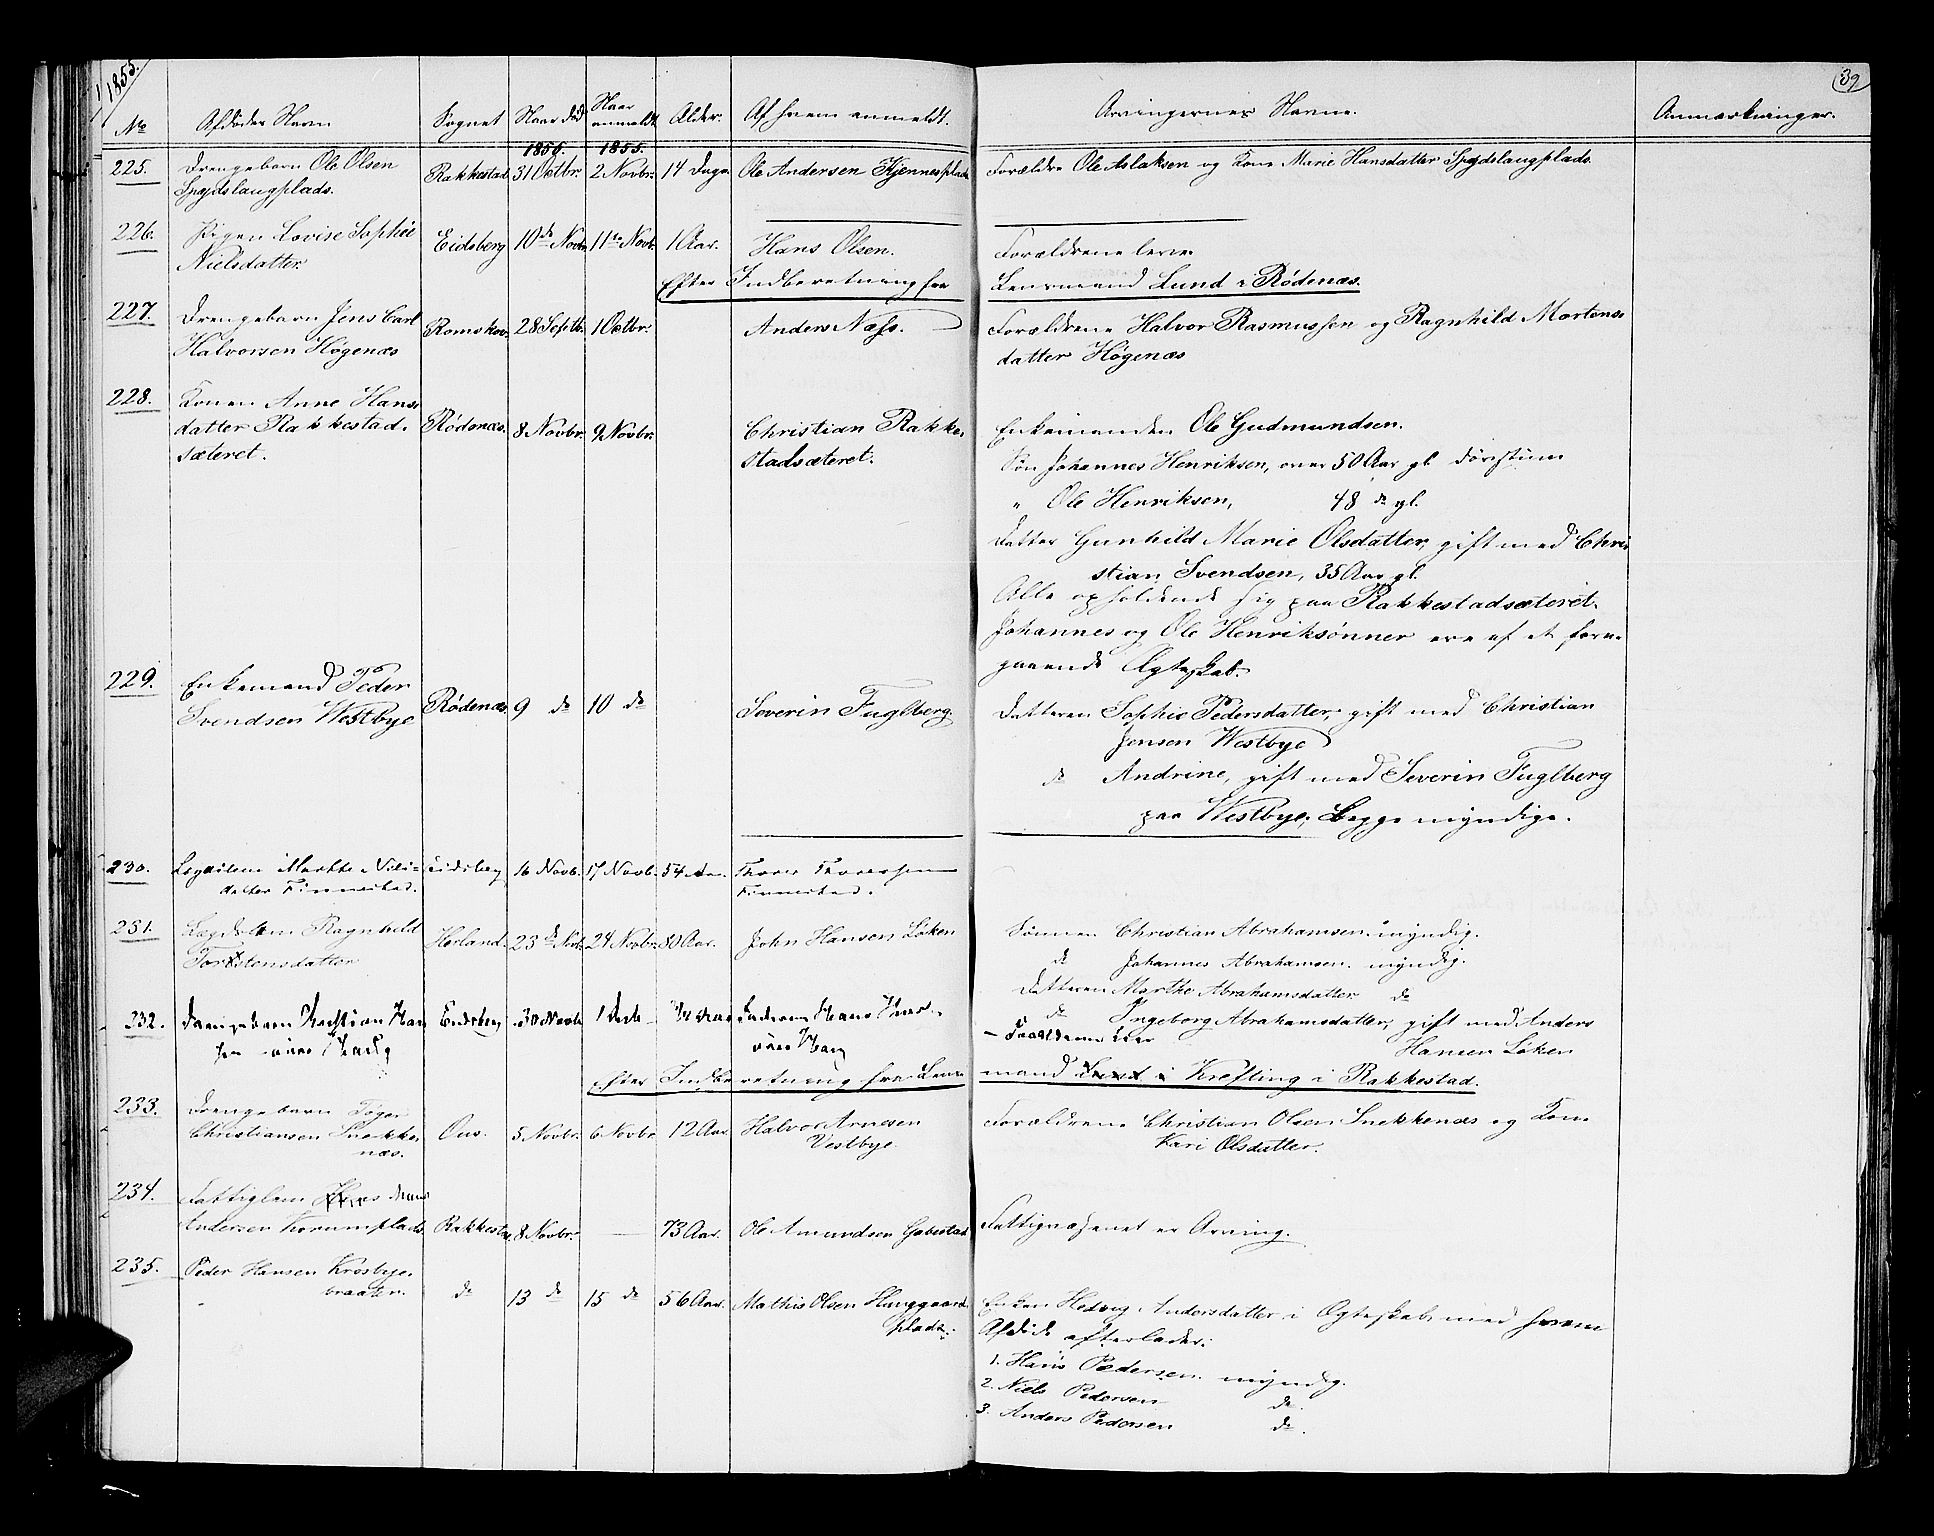 1855.
39
No Afdødes Navn Sognet Naar død Naar anmeldt Alder. Af hvem anmeldt. Arvingernes Navne. Anmærkninger.
1855. 1855.
225. Drengebarn Ole Olsen Rakkestad 31 Octbr. 2 Novbr. 14 Dage Ole Andersen Kjennesplads Forældre Ole Aslaksen og Kone Marie Hansdatter Spydslaugplads.
Spydslaugplads.
226. Pigen Lovise Sophie Eidsberg 10de Novbr 11te Novbr 1 Aar. Hans Olsen. Forældrene leve.
Nielsdatter.
Efter Indberetning fra Lensmand Lund i Rødenæs.
227. Drengebarn Jens Carl Romskov. 28 Septb. 1 Octbr. Anders Næss. Forældrene Halvor Rasmussen og Ragnhild Mortens-
Halvorsen Høgenæs datter Høgenæs
228. Konen Anne Hans-
datter Rakkestad- Rødenæs. 8 Novbr. 9 Novbr. Christian Rakke- Enkemanden Ole Gudmundsen.
sæteret. stadsæteret. Søn Johannes Henriksen, over 50 Aar gl.
" Ole Henriksen, 48 do gl.
Datter Gunhild Marie Olsdatter, gift med Chri-
stian Svendsen, 35 Aar gl.
Alle opholdende sig paa Rakkestadsæteret.
Johannes og Ole Henriksønner ere af et fore-
gaaende Ægteskab.
229. Enkemand Peder
Svendsen Westbye Rødenæs 9 do 10 do Severin Fuglberg Datteren Sophie Pedersdatter, gift med Christian
Jensen Westbye
do Andrine, gift med Severin Fuglberg
paa Westbye; Begge myndige.
230. Lægdslem Marthe Niels- Eidsberg 16 Novb. 17 Novb. 54 Aar. Thore Thoresen
datter Finnestad. Finnestad.
231. Lægdslem Ragnhild Herland. 23de Novbr. 24 Novbr. 80 Aar. John Hansen Løken Sønnen Christian Abrahamsen. myndig.
Torstensdatter do Johannes Abrahamsen. myndig.
Datteren Marthe Abrahamsdatter do
do Ingeborg Abrahamsdatter, gift med Anders
Hansen Løken
232. Drengebarn Christian Han- Eidsberg 30 Novb 1 Decb Faderen Hans - Forældrene lever
sen
Efter Indberetning fra Lens-
mand Lund i Krefting i Rakkestad.
233. Drengebarn Tøger
Christiansen Snekke- Øus. 5 Novbr. 6 Novbr 12 Aar. Halvor Arnesen Forældrene Christian Olsen Snekkenæs og Kone
næs. Vestbye. Kari Olsdatter.
234. Fattiglem Hans
Andersen Korumplads Rakkestad 8 Novbr. — 73 Aar. Ole Amundsen Gabestad Fattigvæsenet er Arving.
235. Peder Hansen Krosbye-
braaten. do 13 do 15 do 56 Aar. Mathis Olsen Hanggaard- Enken Hedvig Andersdatter i Ægteskab med hvem
plads. Afdøde efterlader:
1. Hans Pedersen. myndig.
2. Niels Pedersen do.
3. Anders Pedersen do.